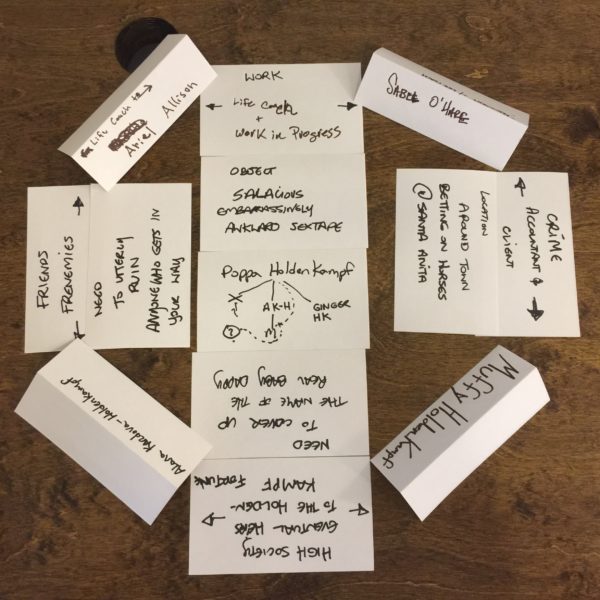 ← Life Coach to →
Ariel Allison
WORK
← Life Coach →
+
Work in Progress
SABLE O'HARE
OBJECT
SALACIOUS
EMBARASSINGLY
AWKWARD SEXTAPE
FRIENDS
← FRENEMIES →
NEED
TO UTTERLY
RUIN
ANYONE WHO GETS IN
YOUR WAY
CRIME
← ACCOUNTANT & →
CLIENT
LOCATION
AROUND TOWN
BETTING ON HORSES
@ SANTA ANITA
Poppa HoldenKampf
X AK-H GINGER
HK
? M
NEED
TO COVER UP
THE NAME OF THE
REAL BABY DADDY
HIGH SOCIETY
EVENTUAL HEIRS
← TO THE HOLDEN- →
KAMPF FORTUNE
Holdenkampf
Muffy HoldenKampf